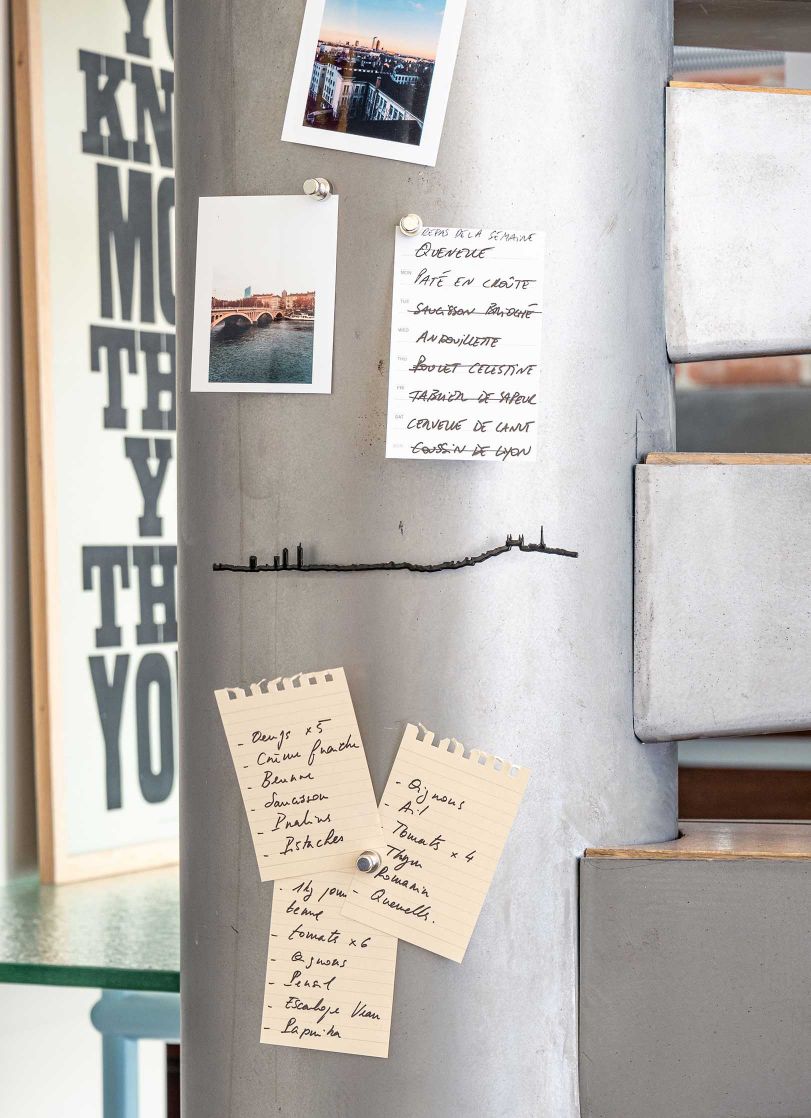 YO
KN
MO
TH
Y
TH
YO
REPAS DE LA SEMAINE
QUENELLE
MON PATÉ EN CROÛTE
TUE SAUCISSON BRIOCHÉ
WED ANDOUILLETTE
THU POULET CELESTINE
FRI TABLIER DE SAPEUR
SAT CERVELLE DE CANUT
COUSSIN DE LYON
- Oeufs x5
- Crème fraiche
- Beurre
- Saucisson
- Pralins
- Pistaches
- Oignons
- Ail
Tomates x 4
Thym
Romarin
- Quenelles.
- 1kg pom
terre
- tomates x6
- Oignons
- Persil
- Escalope Veau
- Paprika